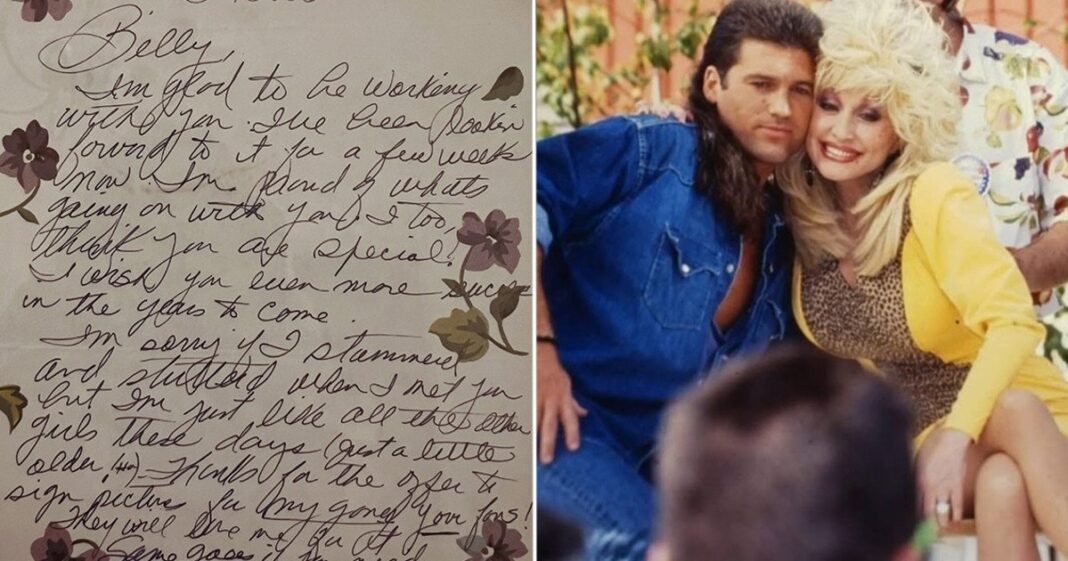 Billy,
I'm glad to be working
with you. I've been lookin
forward to it for a few weeks
now. I'm proud of whats
going on with you. I too,
think you are special!
I wish you even more success
in the years to come.
I'm sorry if I stammered
and studdered when I met you
but I'm just like all the other
girls these days (just a little
older,) Thanks for the offer to
sign pictures for my gone your fans!
They will love me for it
Same goes if I'm